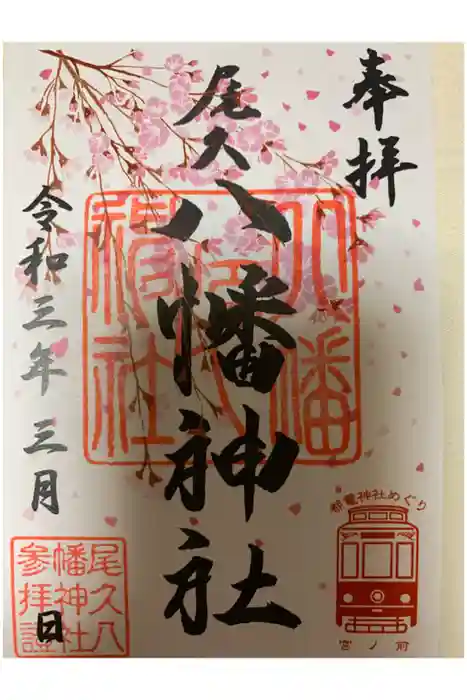 奉拝
尾久八幡神社
八幡神社
令和三年三月
日
尾久八
幡神社
参拝證
都電神社めぐり
宮ノ前